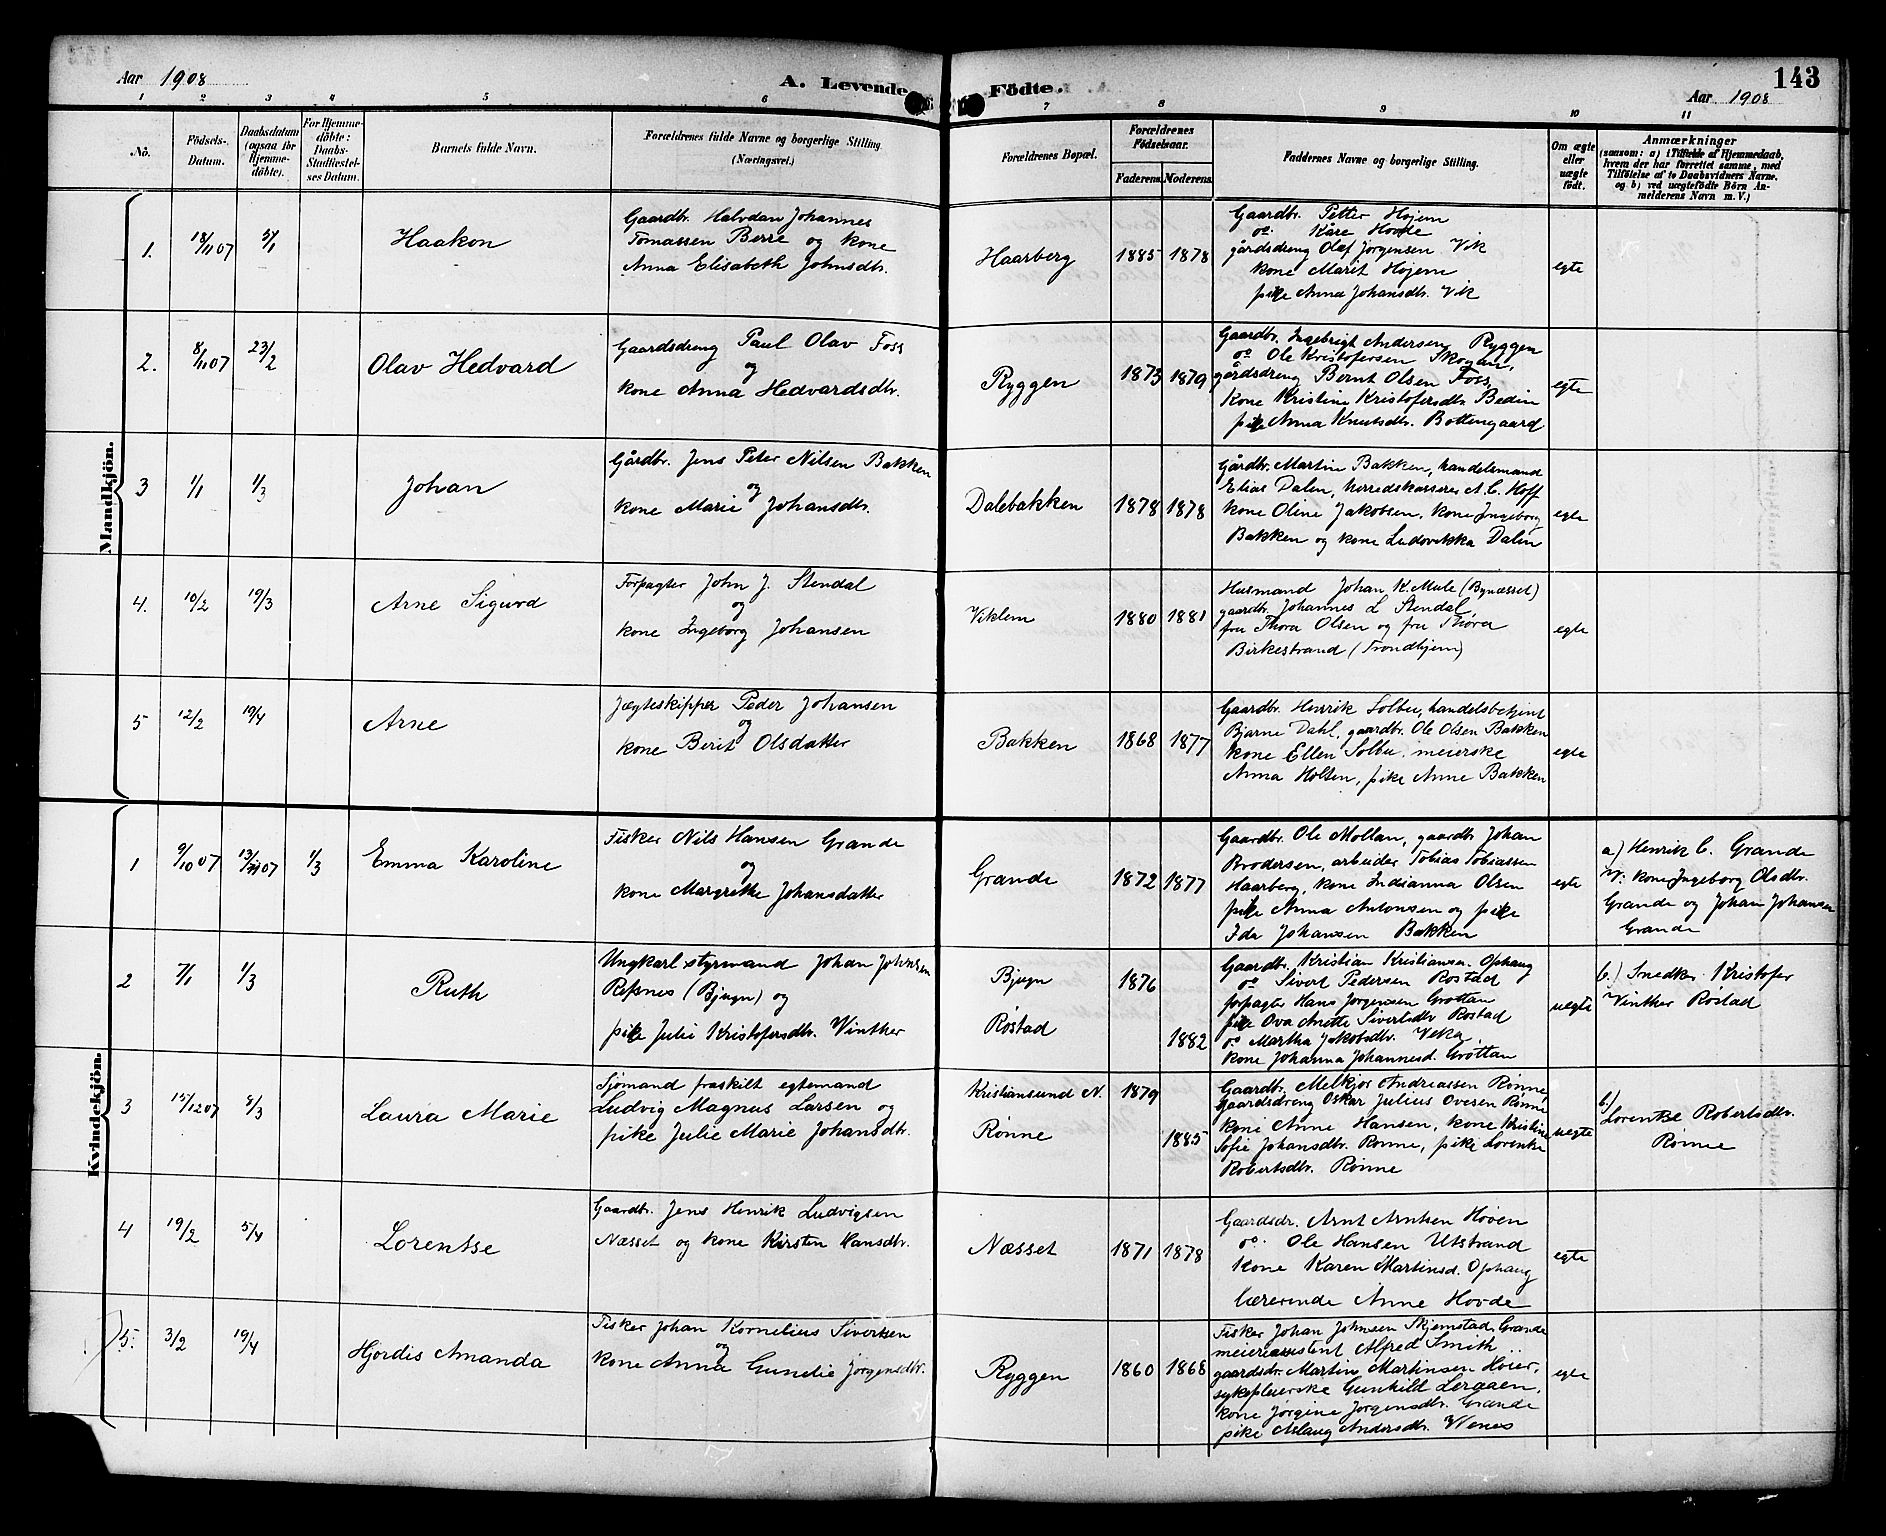 Aar 1908
A. Levende
Födte.
143
Aar 1908
1 2 3 4 5 6 7 8 9 10 11
No.
Födsels-Datum.
Daabsdatum (ogsaa for Hjemmedöbte).
For Hjemmedöbte: Daabs-Stadfæstelses Datum.
Barnets fulde Navn.
Forældrenes fulde Navne og borgerlige Stilling (Næringsvei.)
Forældrenes Bopæl.
Forældrenes Födselsaar.
Faderens. Moderens.
Faddernes Navne og borgerlige Stilling.
Om ægte eller uægte födt.
Anmærkninger
(saasom: a) i Tilfælde af Hjemmedaab, hvem der har forrettet samme, med Tilföielse af to Daabsvidners Navne, og b) ved uægtefödte Börn Anmelderens Navn m. V.)
Mandkjön.
1. 18/11 07 5/1 Haakon
Gaardbr. Halvdan Johannes
Tomassen Berre og kone
Anna Elisabeth Johnsdtr.
Haarberg 1885 1878
Gaardbr. Petter Hojem
do. Kåre Hovde
gårdsdreng Olaf Jorgensen Vik
kone Marit Hojem
pike Anna Johansdtr. Vik
egte
2. 8/11 07 23/2 Olav Hedvard
Gaardsdreng Paul Olav Foss
og
kone Anna Hedvardsdtr.
Ryggen 1873 1879
Gaardbr. Ingebrigt Andersen Ryggen
do Ole Kristofersen Skogen,
gårdsdreng Bernt Olsen Foss,
kone Kristine Kristofersdtr. Bedin
pike Anna Knutsdtr. Bottengaard
egte
3 1/1 1/3 Johan
Gårdbr. Jens Peter Nilsen Bakken
og
kone Marie Johansdtr.
Dalebakken 1878 1878
Gårdbr. Martin Bakken, handelsmand
Elias Dalen, herredskasserer A. C. Hoff
kone Oline Jakobsen, kone Ingeborg
Bakken og kone Ludovikka Dalen
egte
4. 10/2 19/3 Arne Sigurd
Forpagter John J. Stendal
og
kone Ingeborg Johansen
Viklem 1880 1881
Husmand Johan K. Mule (Bynæsset)
gaardbr. Johannes L Stendal,
fru Thora Olsen og fru Thora
Birkestrand (Trondhjem)
egte
5 12/2 19/4 Arne
Jægteskipper Peder Johansen
og
kone Berit Olsdatter
Bakken 1868 1877
Gaardbr. Henrik Solbu, handelsbetjent
Bjarne Dahl, gaardbr. Ole Olsen Bakken
kone Ellen Solbu, meierske
Anna Holten, pike Anne Bakken
egte
Kvindekjön.
1 9/10 07 13/11 07 1/3 Emma Karoline
Fisker Nils Hansen Grande
og
kone Margrethe Johansdatter
Grande 1872 1877
Gaardbr. Ole Mollan, gaardbr Johan
Brodersen, arbeider Tobias Tobiassen
Haarberg, kone Indianna Olsen
pike Anna Antonsen og pike
Ida Johansen Bakken
egte
a) Henrik C. Grande
V: kone Ingeborg Olsdtr.
Grande og Johan Johansen
Grande
2 7/1 1/3 Ruth
Ungkarl styrmand Johan Johnsen
Refsnes (Bjugn) og
pike Julie Kristofersdtr. Vinther
Bjugn 1876
Røstad 1882
Gaardbr. Kristian Kristiansen Ophaug
do Sivert Pedersen Rostad
forpagter Hans Jorgensen Grottan
pike Ova Anette Sivertsdtr Rostad
do Martha Jakobsdtr. Veka
kone Johanna Johannesd. Grøttan
uegte
b.) Snedker Kristofer
Vinther Røstad
3 15/12 07 8/3 Laura Marie
Sjømand fraskilt egtemand
Ludvig Magnus Larsen og
pike Julie Marie Johansdtr.
Kristiansund N. 1879
Rønne 1885
Gaardbr. Melkjor Andreassen Rønne,
gaardsdreng Oskar Julius Ovesen Rønne
kone Anne Hansen, kone Kristine
Sofie Johansdtr. Rønne, pike Lorentse
Robertsdtr. Rønne
uegte
b)
Lorentse Robertsdtr.
Rønne
4 19/2 5/4 Lorentse
Gaardbr. Jens Henrik Ludvigsen
Næsset og kone Kirsten Hansdtr.
Næsset 1871 1878
Gaardsdr. Arnt Arntsen Hoven
do. Ole Hansen Utstrand
kone Karen Martinsd. Ophaug
lærerinde Anne Hovde
egte
5. 3/2 19/4 Hjordis Amanda
Fisker Johan Kornelius Sivertsen
og
kone Anna Gunelie Jorgensdtr.
Ryggen 1860 1868
Fisker Johan Johnsen Skjemstad, Grande
meieriassistent Alfred Smith
gaardsdr. Martin Martinsen Hoier,
sykepleierske Gunhild Lergaen,
kone Jorgine Jorgensdtr. Grande
pike Aslaug Andersdtr. Wenes
egte